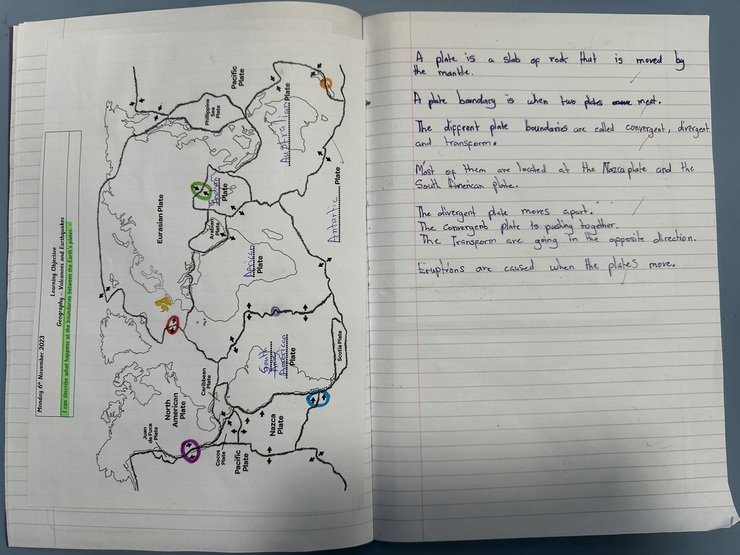 Monday 6th November 2023
Learning Objective
Geography – Volcanoes and Earthquakes
I can describe what happens at the boundaries between the Earth's plates.
Juan
de Fuca
Plate
North
American
Plate
Caribbean
Plate
Cocos
Plate
Pacific
Plate
Nazca
Plate
South
American
Plate
Scotia Plate
African
Plate
Eurasian Plate
Arabian
Plate
Indian
Plate
Philippine
Sea
Plate
Pacific
Plate
Australian
Plate
Antartic Plate
A plate is a slab of rock that is moved by
the mantle.
A plate boundary is when two plates meet.
The diffrent plate boundaries are called convergent, divergent
and transform.
Most of them are located at the Nazca plate and the
South American plate.
The divergent plate moves apart.
The convergent plate is pushing together.
The Transform are going in the opposite direction.
Eruptions are caused when the plates move.